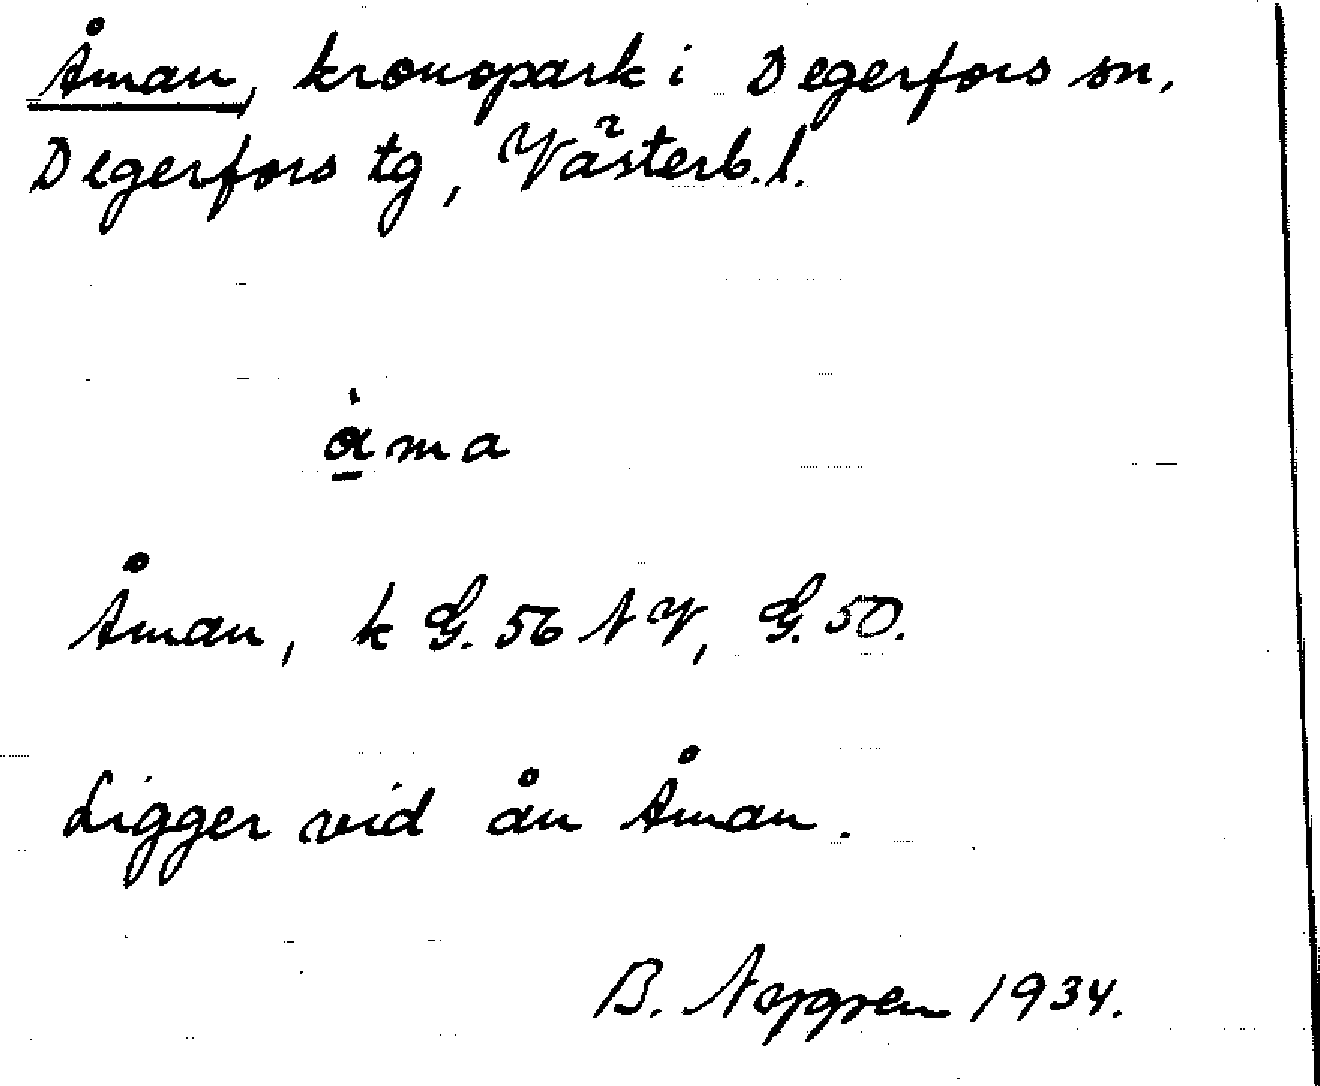 Åman, kronopark i Degerfors sn,
Degerfors tg, Västerb. l.
åma
Åman, k G. 56 NV, G. 50.
Ligger vid ån Åman.
B. Nygren 1934.